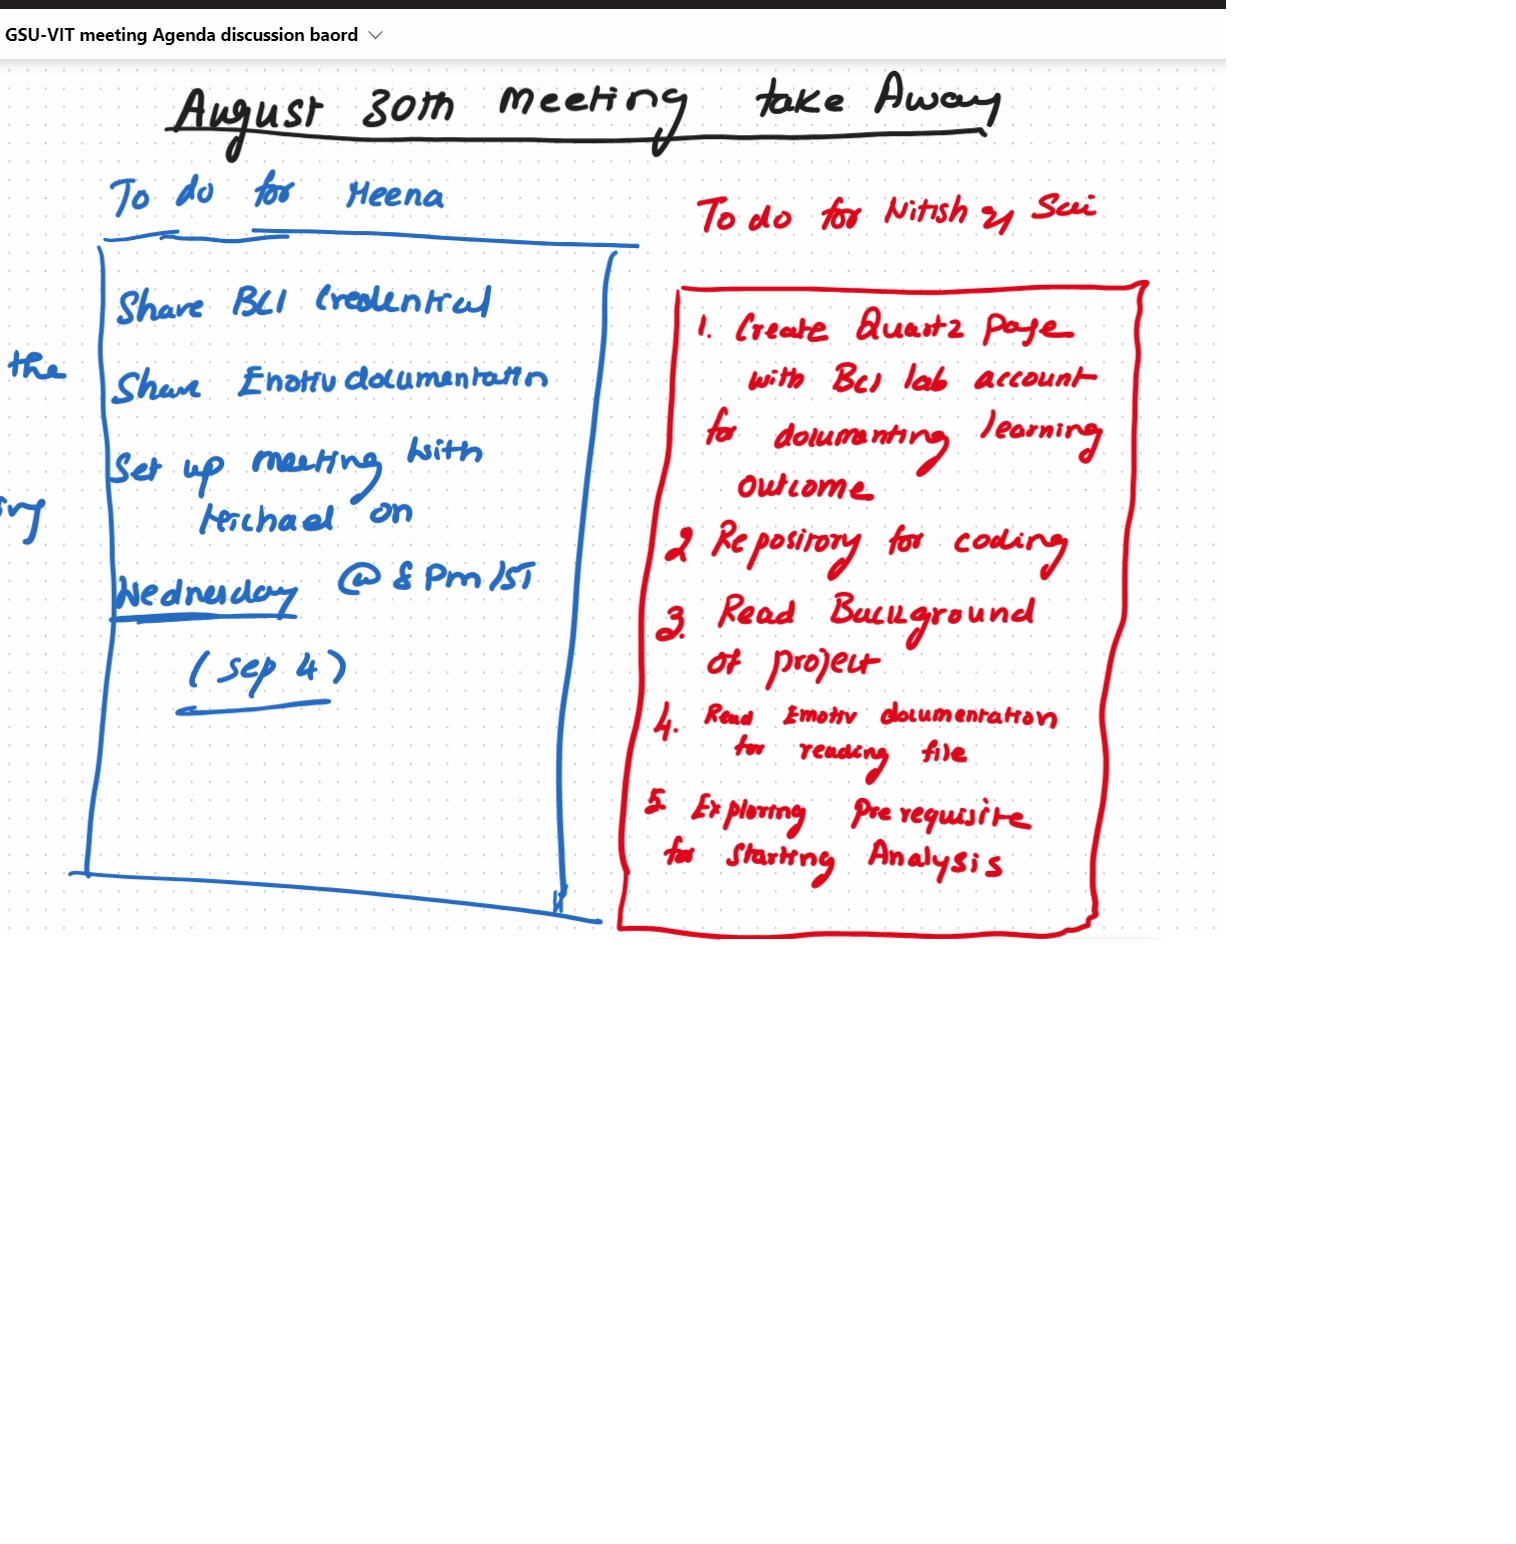 GSU-VIT meeting Agenda discussion baord
August 30th Meeting take Away
To do for Meena
Share BCI Credential
Share Emotiv documentation
Set up meeting with
Michael on
Wednesday @ 8 Pm IST
(Sep 4)
the
To do for Nitish & Sai
1. Create Quartz Page
with BCI lab account
for documenting learning
outcome
2 Repository for coding
3. Read Background
of project
4. Read Emotiv documentation
for reading file
5 Exploring Prerequisite
for starting Analysis